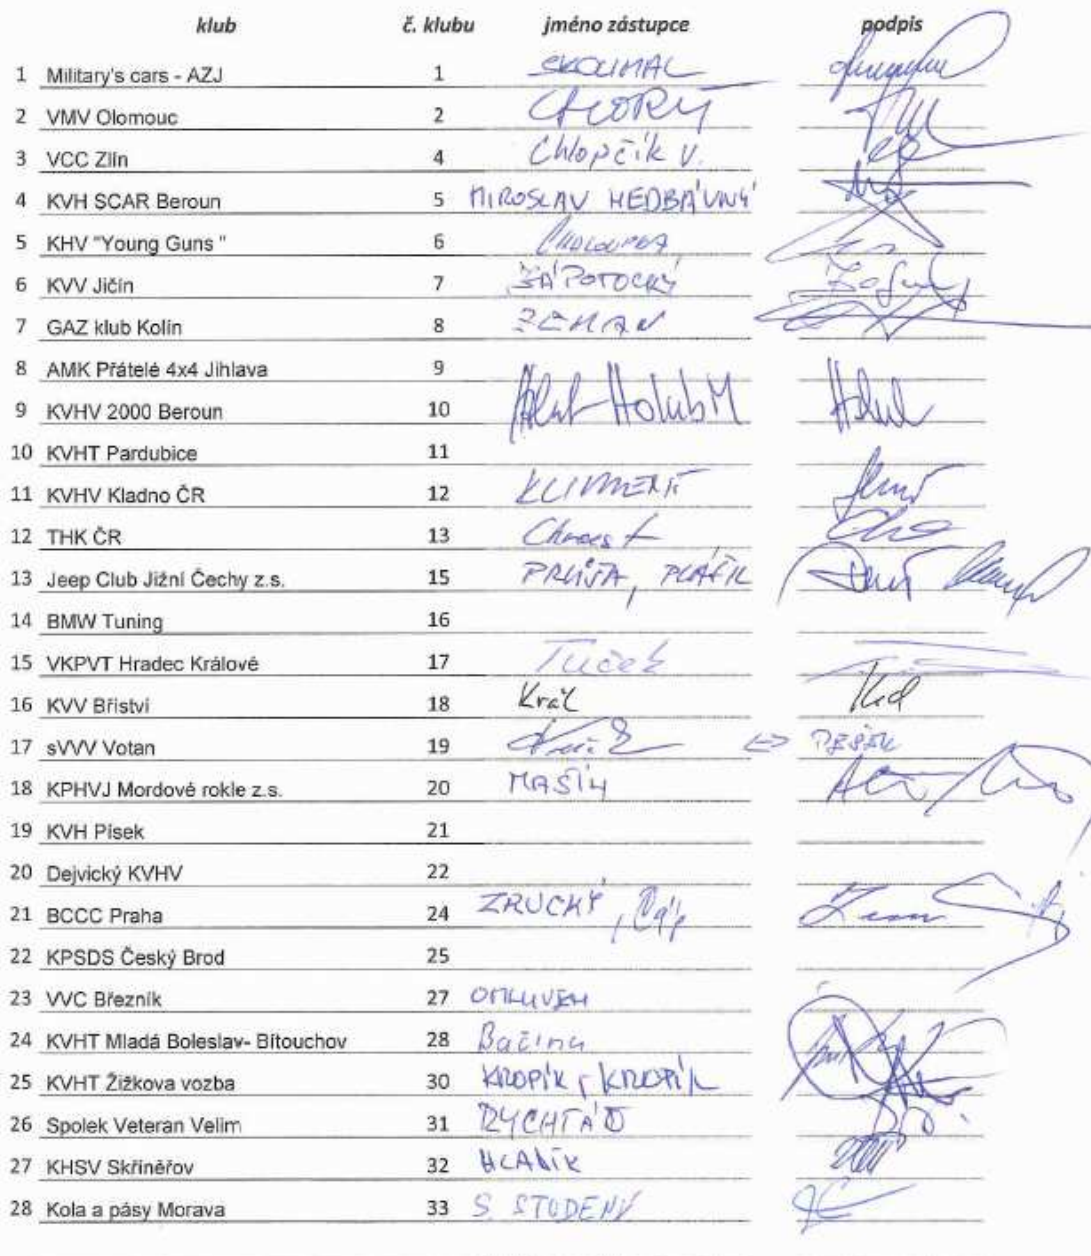 klub č. klubu jméno zástupce podpis
1 Military's cars - AZJ 1 SKOUMAL
2 VMV Olomouc 2 CHORÝ
3 VCC Zlín 4 Chlopčík V.
4 KVH SCAR Beroun 5 MIROSLAV NEDBÁVNÝ
5 KHV "Young Guns " 6 CHALOUPKA
6 KVV Jičín 7 ZÁPOTOCKÝ
7 GAZ klub Kolín 8 ZEMAN
8 AMK Přátelé 4x4 Jihlava 9
9 KVHV 2000 Beroun 10 Holub M
10 KVHT Pardubice 11
11 KVHV Kladno ČR 12 KLIMENT
12 THK ČR 13
13 Jeep Club Jižní Čechy z.s. 15 PRŮŠA,
14 BMW Tuning 16
15 VKPVT Hradec Králové 17 Tuček
16 KVV Bříství 18 Král
17 sVVV Votan 19 <=> PEŠEK
18 KPHVJ Mordové rokle z.s. 20 MAŠÍN
19 KVH Písek 21
20 Dejvický KVHV 22
21 BCCC Praha 24 ZRUCKÝ,
22 KPSDS Český Brod 25
23 VVC Březník 27 OMLUVEN
24 KVHT Mladá Boleslav- Bítouchov 28 Bačina
25 KVHT Žižkova vozba 30 KROPÍK, KROPÍK
26 Spolek Veteran Velim 31 RYCHTÁŘ
27 KHSV Skřiněřov 32 HLADÍK
28 Kola a pásy Morava 33 S. STUDENÝ